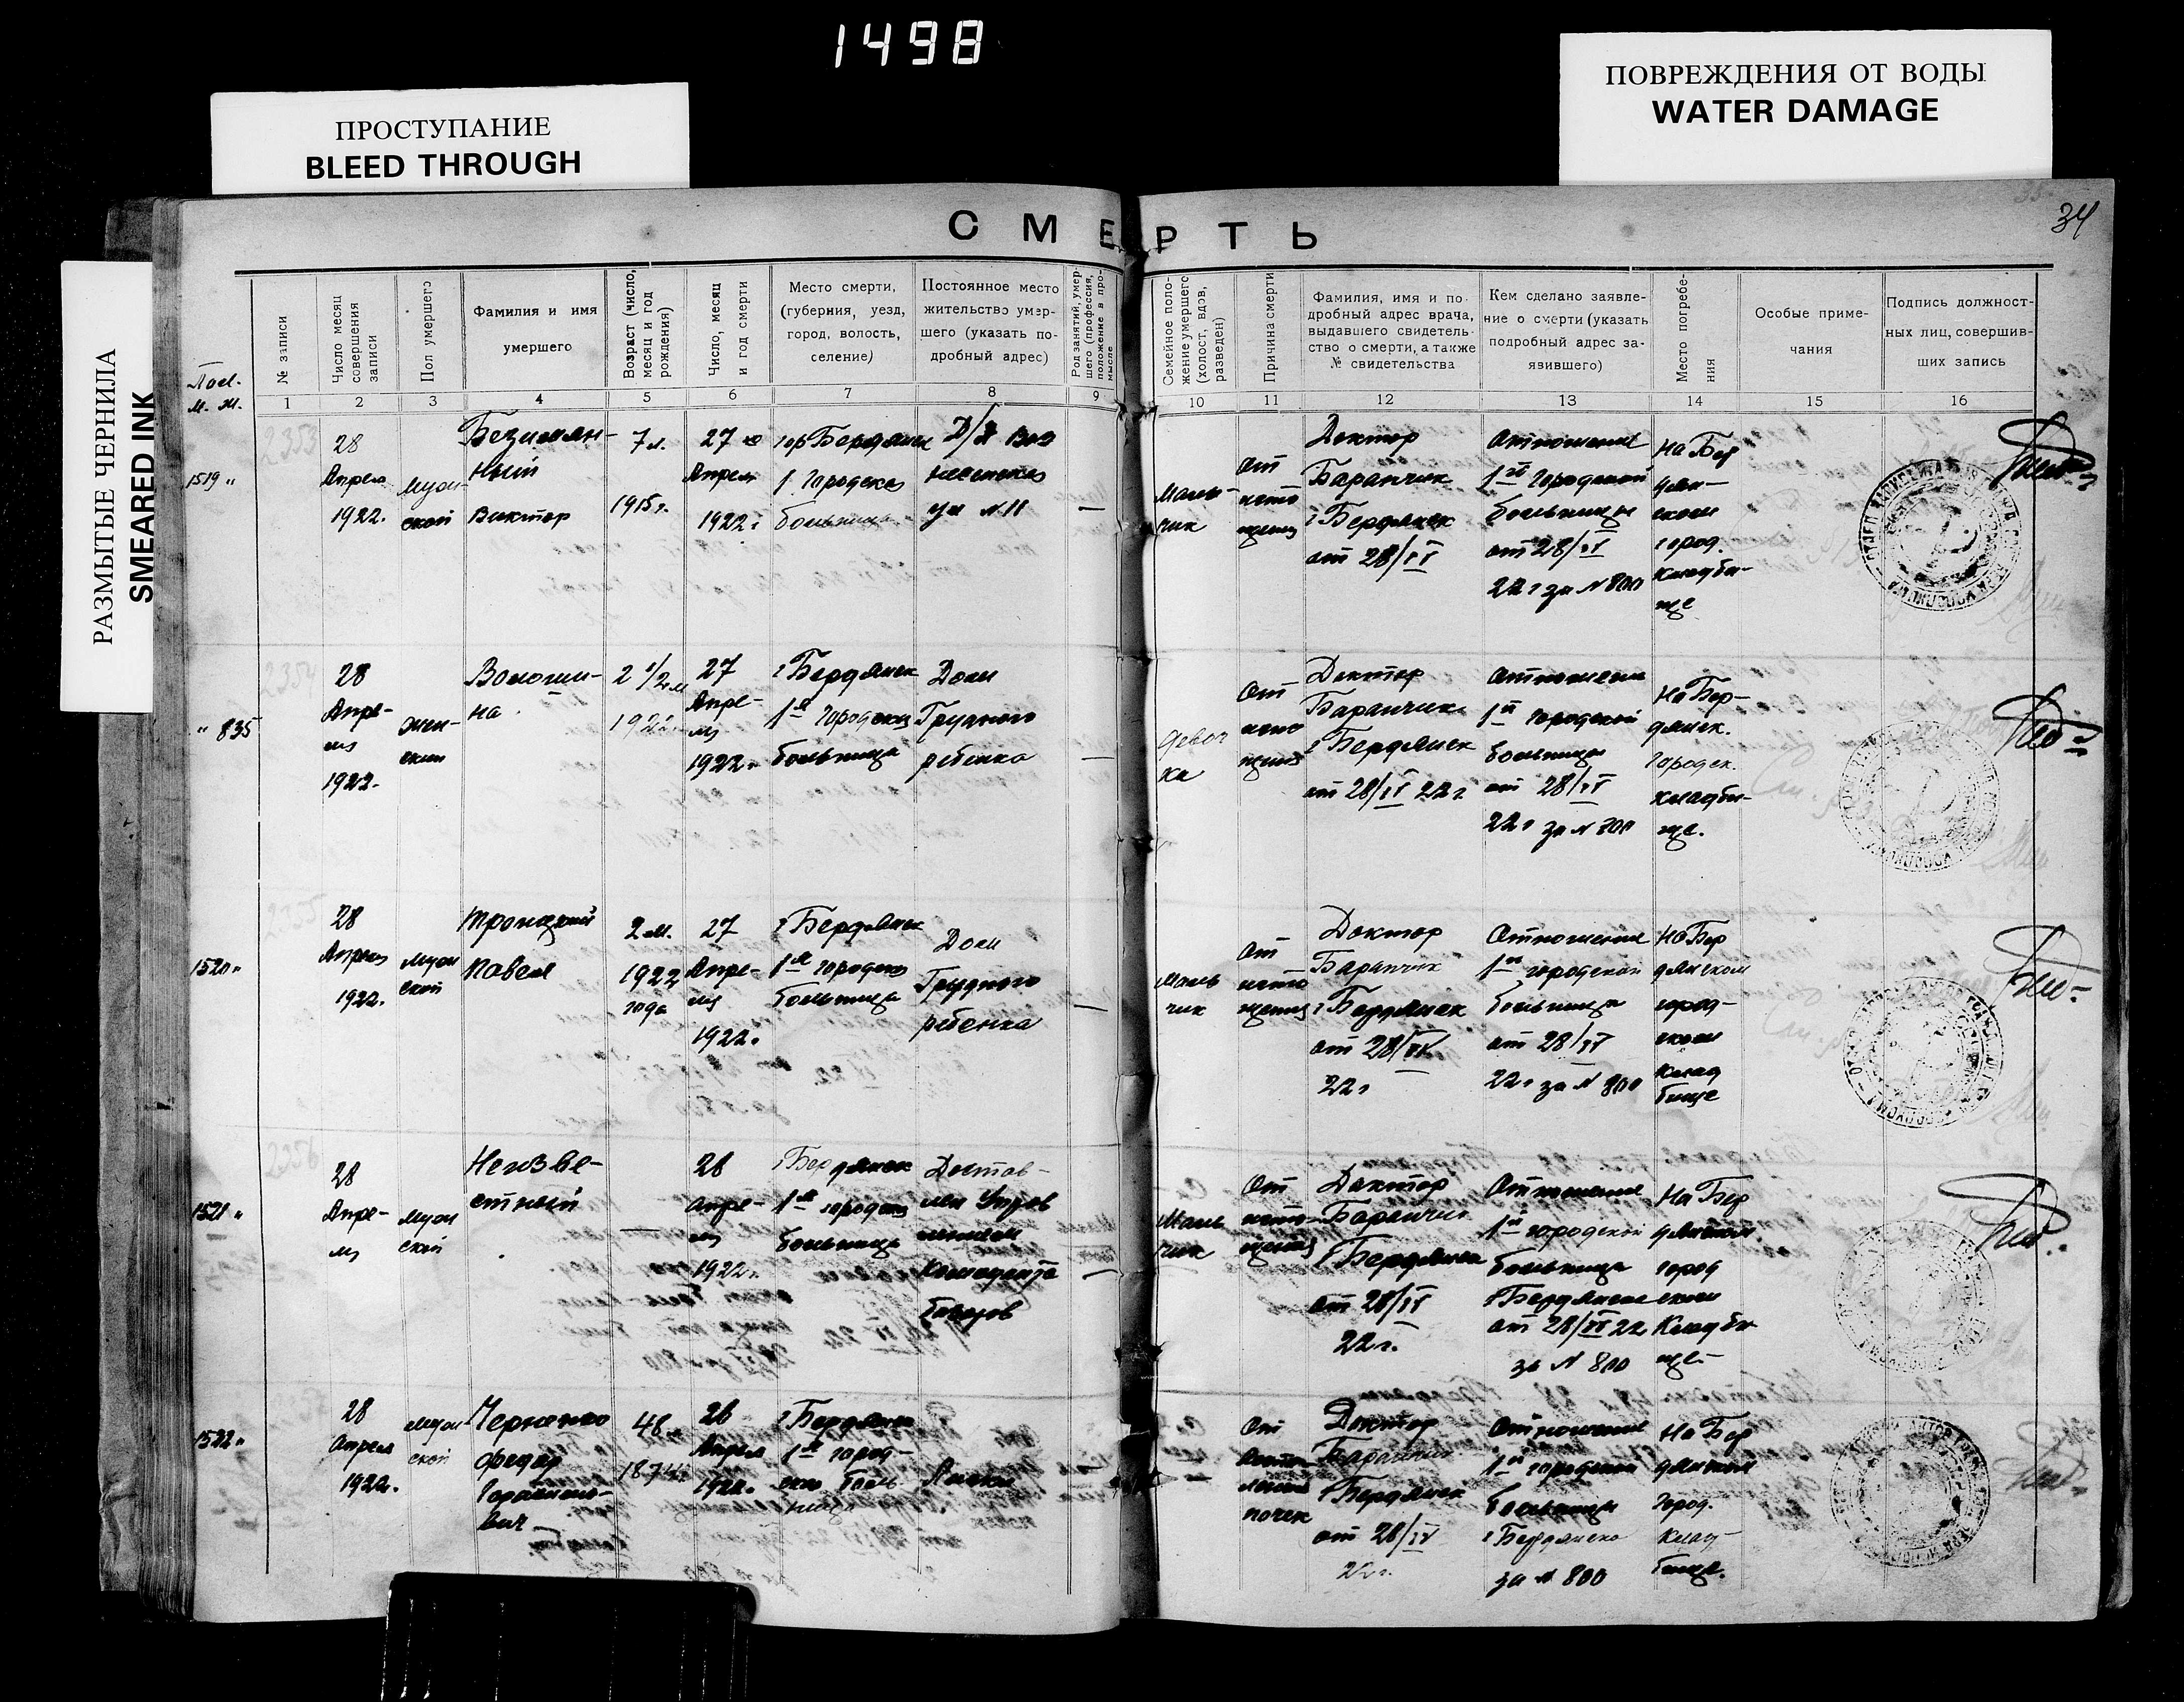 1498
ПРОСТУПАНИЕ
BLEED THROUGH
ПОВРЕЖДЕНИЯ ОТ ВОДЫ
WATER DAMAGE
РАЗМЫТЫЕ ЧЕРНИЛА
SMEARED INK
34
СМЕРТЬ
м. ж.
№ записи
Число месяц совершения записи
Пол умершего
Фамилия и имя умершего
Возраст (число, месяц и год рождения)
Число, месяц и год смерти
Место смерти, (губерния, уезд, город, волость, селение)
Постоянное место жительство умершего (указать подробный адрес)
Род занятий, умершего (профессия, положение в промысле
Семейное положение умершего (холост, вдов, разведен)
Причина смерти
Фамилия, имя и подробный адрес врача, выдавшего свидетельство о смерти, а также № свидетельства
Кем сделано заявление о смерти (указать подробный адрес заявившего)
Место погребения
Особые примечания
Подпись должностных лиц, совершивших запись
1 2 3 4 5 6 7 8 9 10 11 12 13 14 15 16
2353
1519 "
28
Апреля
1922.
Муж-
ской
Безимян-
ный
Виктор
7 л.
1915 г.
27
Апреля
1922 г
гор Бердянск
1 Городская
больница
ул № 11
—
Маль-
чик
от
исто
щения
Доктор
Баранчик
г Бердянск
от 28/IV
Отношение
1й Городской
больницы
от 28/IV
22 г за № 800
На Бер
дян-
ском
город.
кладби-
ще
2354
" 835
28
Апре-
ля
1922.
Жен-
ский
Волоши-
на
2 1/2 м
1922
27
Апре-
ля
1922 г
г Бердянск
1я Городская
больница
Дом
Грудного
ребенка
—
Девоч
ка
от
исто
щения
Доктор
Баранчик
г Бердянск
от 28/IV 22 г
Отношение
1й городской
больницы
от 28/IV
22 г за № 800
На Бер-
дянск.
Городск.
кладби-
ще.
2355
1520 "
28
Апреля
1922.
Муж
ской
Троицкий
Павел
2 м.
1922
года
27
Апре-
ля
1922 г
г Бердянск
1я городская
больница
Дом
Грудного
ребенка
—
Маль
чик
от
исто
щения
Доктор
Баранчик
г Бердянск
от 28/IV
22 г
Отношение
1й городской
больницы
от 28/IV
22 г за № 800
На Бер
дянском
город-
ском
клад
бище
2356
1521 "
28
Апре-
ля
Муж
ской
Неизве-
стный
—
28
Апре-
ля
1922 г.
г Бердянск
1я городская
больница
Достав-
лен
—
Маль
чик
от
исто-
щения
Доктор
Баранчик
г Бердянск
от 28/IV
22 г.
Отношение
1й городской
больницы
г Бердянска
от 28/IV 22
за № 800
На Бер
дянском
город
ском
Кладби
ще.
1522 "
28
Апреля
1922.
Муж
ской
Черненко
Федор
48 л
1874 г
26
Апреля
1922 г.
г Бердянск
1я город-
ская боль
ница
—
—
от
почек
Доктор
Баранчик
г Бердянск
от 28/IV
22 г.
Отношение
1й городской
больницы
г Бердянска
за № 800
На Бер
дянском
Город.
клад-
бище.